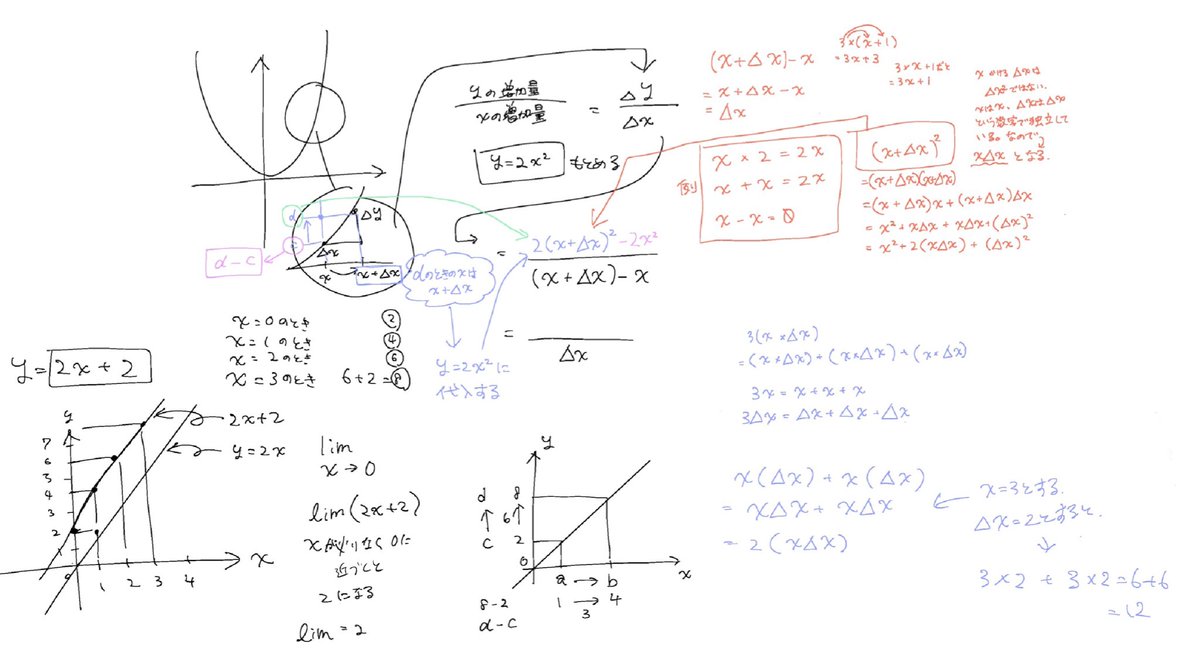 yの増加量
xの増加量
= Δy
Δx
y=2x² もとめる
Δy
Δx
x
x+Δx
d
c
d-c
dのときのxは
x+Δx
= 2(x+Δx)²-2x²
(x+Δx)-x
=
Δx
y=2x²に
代入する
(x+Δx)-x
= x+Δx-x
= Δx
3×(x+1)
=3x+3
3×x+1だと
=3x+1
Δxは
Δxではない。
xはx、ΔxはΔx
という数字で独立して
いる。なので
xΔxとなる
例)
x×2=2x
x+x=2x
x-x=0
(x+Δx)²
=(x+Δx)(x+Δx)
=(x+Δx)x+(x+Δx)Δx
=x²+xΔx+xΔx+(Δx)²
=x²+2(xΔx)+(Δx)²
x=0のとき ②
x=1のとき ④
x=2のとき ⑥
x=3のとき 6+2=⑧
y=2x+2
y
7
6
5
4
3
2
1
0
1 2 3 4
x
2x+2
y=2x
lim
x→0
lim(2x+2)
xがかぎりなく0に
近づくと
2になる
lim=2
y
d
↑
c
8
6↑
2
0
a → b
x
1 → 4
3
8-2
d-c
3(x×Δx)
=(x×Δx)+(x×Δx)+(x×Δx)
3x=x+x+x
3Δx=Δx+Δx+Δx
x(Δx)+x(Δx)
=xΔx+xΔx
=2(xΔx)
x=3とする。
Δx=2とすると、
3×2+3×2=6+6
=12